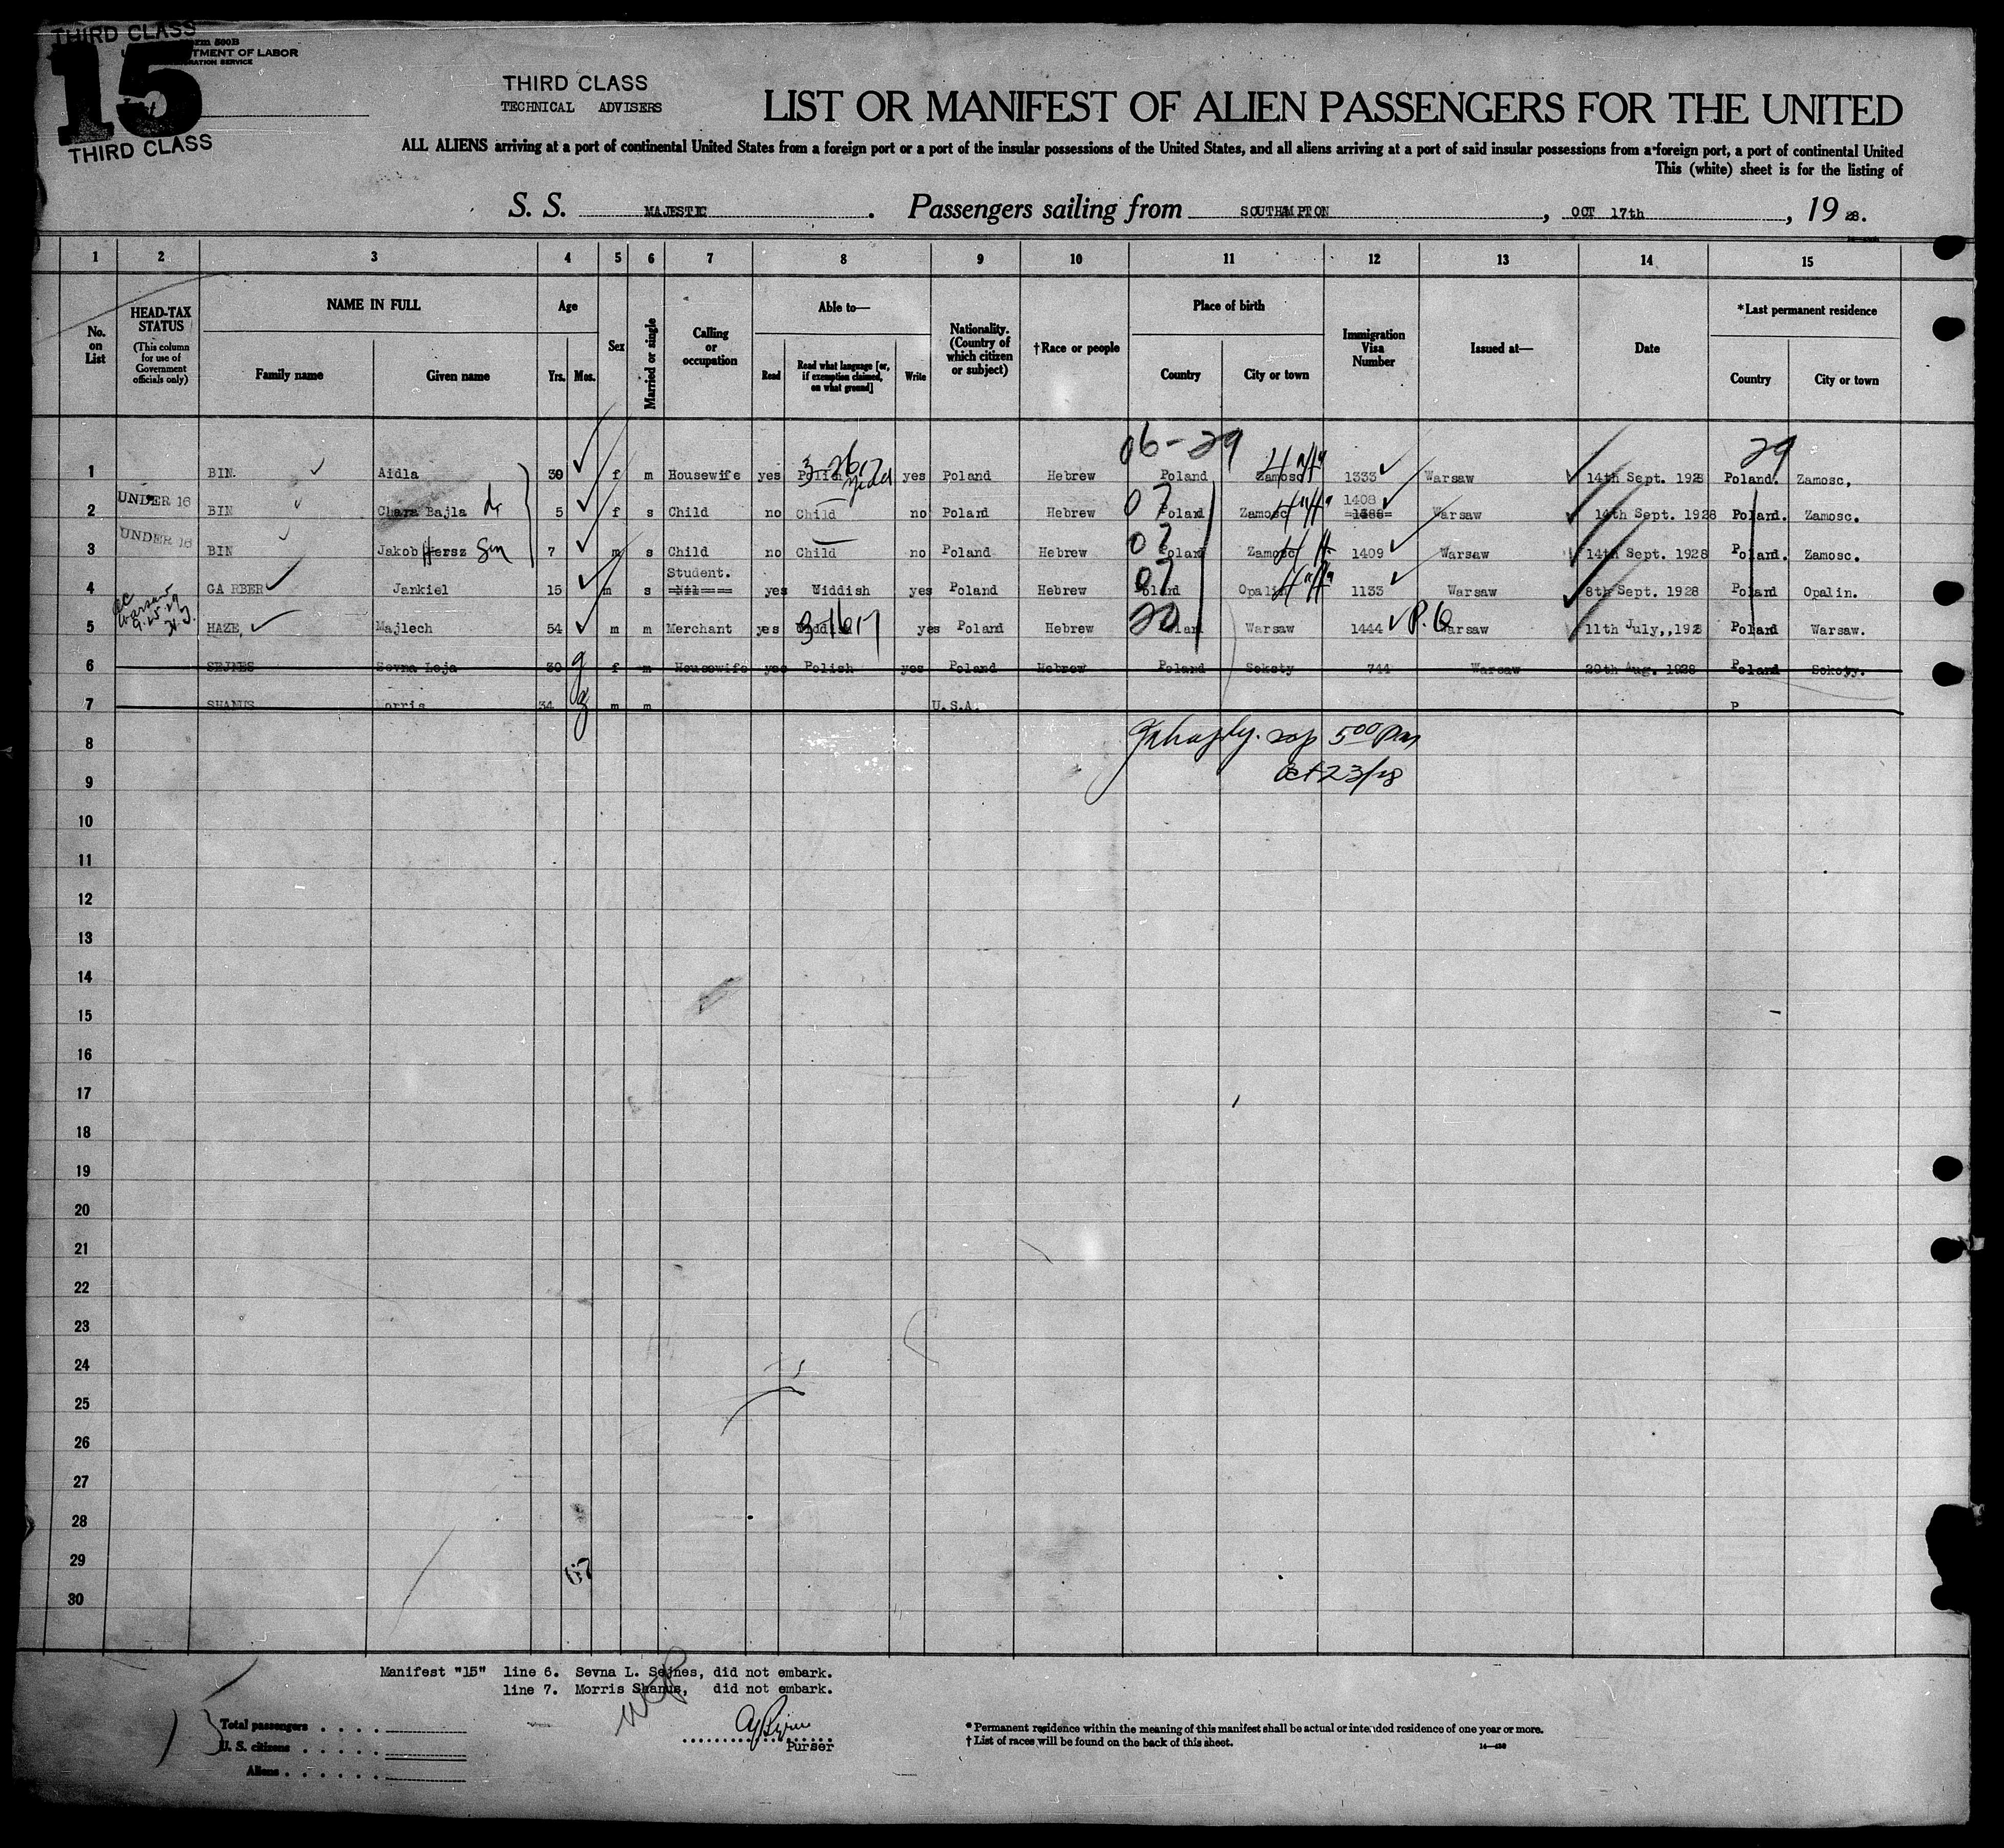 THIRD CLASS
Form 500B
TMENT OF LABOR
RATION SERVICE
15
THIRD CLASS
THIRD CLASS
TECHNICAL ADVISERS
LIST OR MANIFEST OF ALIEN PASSENGERS FOR THE UNITED
ALL ALIENS arriving at a port of continental United States from a foreign port or a port of the insular possessions of the United States, and all aliens arriving at a port of said insular possessions from a foreign port, a port of continental United
This (white) sheet is for the listing of
S. S. MAJESTIC . Passengers sailing from SOUTHAMPTON , OCT 17th , 19 28.
1 2 3 4 5 6 7 8 9 10 11 12 13 14 15
No. on List
HEAD-TAX STATUS (This column for use of Government officials only)
NAME IN FULL
Family name Given name
Age
Yrs. Mos.
Sex
Married or single
Calling or occupation
Able to—
Read Read what language [or, if exemption claimed, on what ground] Write
Nationality. (Country of which citizen or subject)
†Race or people
Place of birth
Country City or town
Immigration Visa Number
Issued at—
Date
*Last permanent residence
Country City or town
06-29 29
1 BIN. Aidla 30 f m Housewife yes 3-26-17 yes Poland Hebrew Poland Zamosc 1333 Warsaw 14th Sept. 1928 Poland. Zamosc,
UNDER 16
2 BIN Chara Bajla 5 f s Child no Child no Poland Hebrew 07 Poland Zamosc 1408 Warsaw 14th Sept. 1928 Poland. Zamosc.
UNDER 16
3 BIN Jakob Hersz Son 7 m s Child no Child no Poland Hebrew 07 Poland Zamosc 1409 Warsaw 14th Sept. 1928 Poland. Zamosc.
Student.
4 GARBER Jankiel 15 m s Nil yes Widdish yes Poland Hebrew 07 Poland Opalin 1133 Warsaw 8th Sept. 1928 Poland Opalin.
5 HAZE, Majlech 54 m m Merchant yes 3-16-17 yes Poland Hebrew 20 Warsaw 1444 P.O Warsaw 11th July,,1928 Poland Warsaw.
6 SEJNES Sevna Leja 30 f m Housewife yes Polish yes Poland Hebrew Poland Sokoty 744 Warsaw 20th Aug. 1928 Poland Sokoty.
7 SHANUS orris 34 m m U.S.A. P
8
5 00 Pm
Oct 23/28
9
10
11
12
13
14
15
16
17
18
19
20
21
22
23
24
25
26
27
28
29
30
Manifest "15" line 6. Sevna L. Sejnes, did not embark.
line 7. Morris Shanus, did not embark.
Total passengers
U. S. citizens
Aliens
Purser
* Permanent residence within the meaning of this manifest shall be actual or intended residence of one year or more.
† List of races will be found on the back of this sheet.